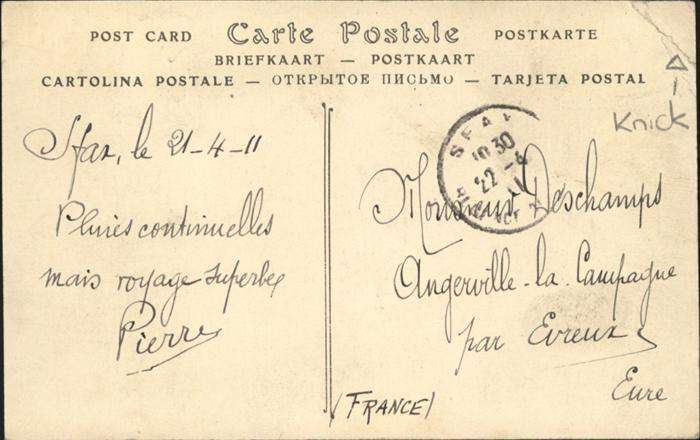 POST CARD Carte Postale POSTKARTE
BRIEFKAART — POSTKAART
CARTOLINA POSTALE — ОТКРЫТОЕ ПИСЬМО — TARJETA POSTAL
Knick
Sfax, le 21-4-11
Pluies continuelles
mais voyage superbe
Pierre
SFAX
10 30
22 -4
11
Monsieur Deschamps
Angerville-la-Campagne
par Evreux
Eure
(FRANCE)